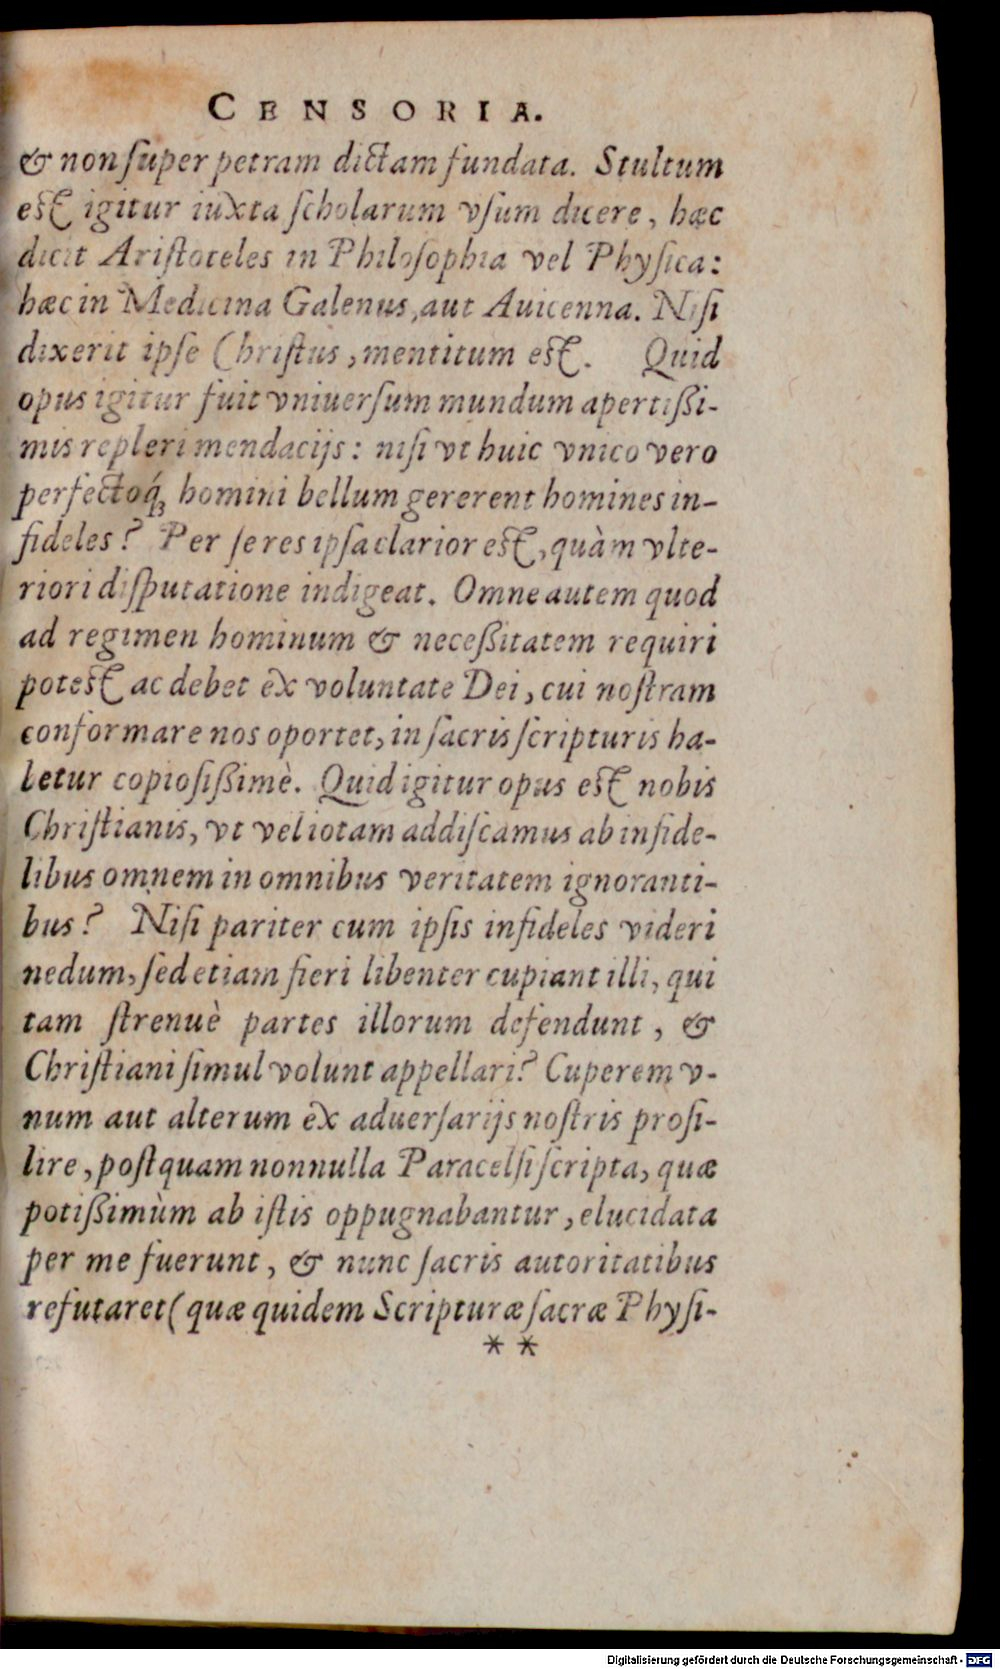 CENSORIA.
& non ſuper petram dictam fundata. Stultum
eſt igitur iuxta ſcholarum vſum dicere, hæc
dicit Ariſtoteles in Philoſophia vel Phyſica:
hæc in Medicina Galenus, aut Auicenna. Niſi
dixerit ipſe Chriſtus, mentitum eſt. Quid
opus igitur fuit vniuerſum mundum apertißi-
mis repleri mendacijs: niſi vt huic vnico vero
perfectoq́; homini bellum gererent homines in-
fideles? Per ſe res ipſa clarior eſt, quàm vlte-
riori diſputatione indigeat. Omne autem quod
ad regimen hominum & neceßitatem requiri
poteſt ac debet ex voluntate Dei, cui noſtram
conformare nos oportet, in ſacris ſcripturis ha-
betur copioſißimè. Quid igitur opus eſt nobis
Chriſtianis, vt vel iotam addiſcamus ab infide-
libus omnem in omnibus veritatem ignoranti-
bus? Niſi pariter cum ipſis infideles videri
nedum, ſed etiam fieri libenter cupiant illi, qui
tam ſtrenuè partes illorum defendunt, &
Chriſtiani ſimul volunt appellari? Cuperem v-
num aut alterum ex aduerſarijs noſtris proſi-
lire, poſtquam nonnulla Paracelſi ſcripta, quæ
potißimùm ab iſtis oppugnabantur, elucidata
per me fuerunt, & nunc ſacris autoritatibus
refutaret (quæ quidem Scripturæ ſacræ Phyſi-
* *
Digitalisierung gefördert durch die Deutsche Forschungsgemeinschaft - DFG